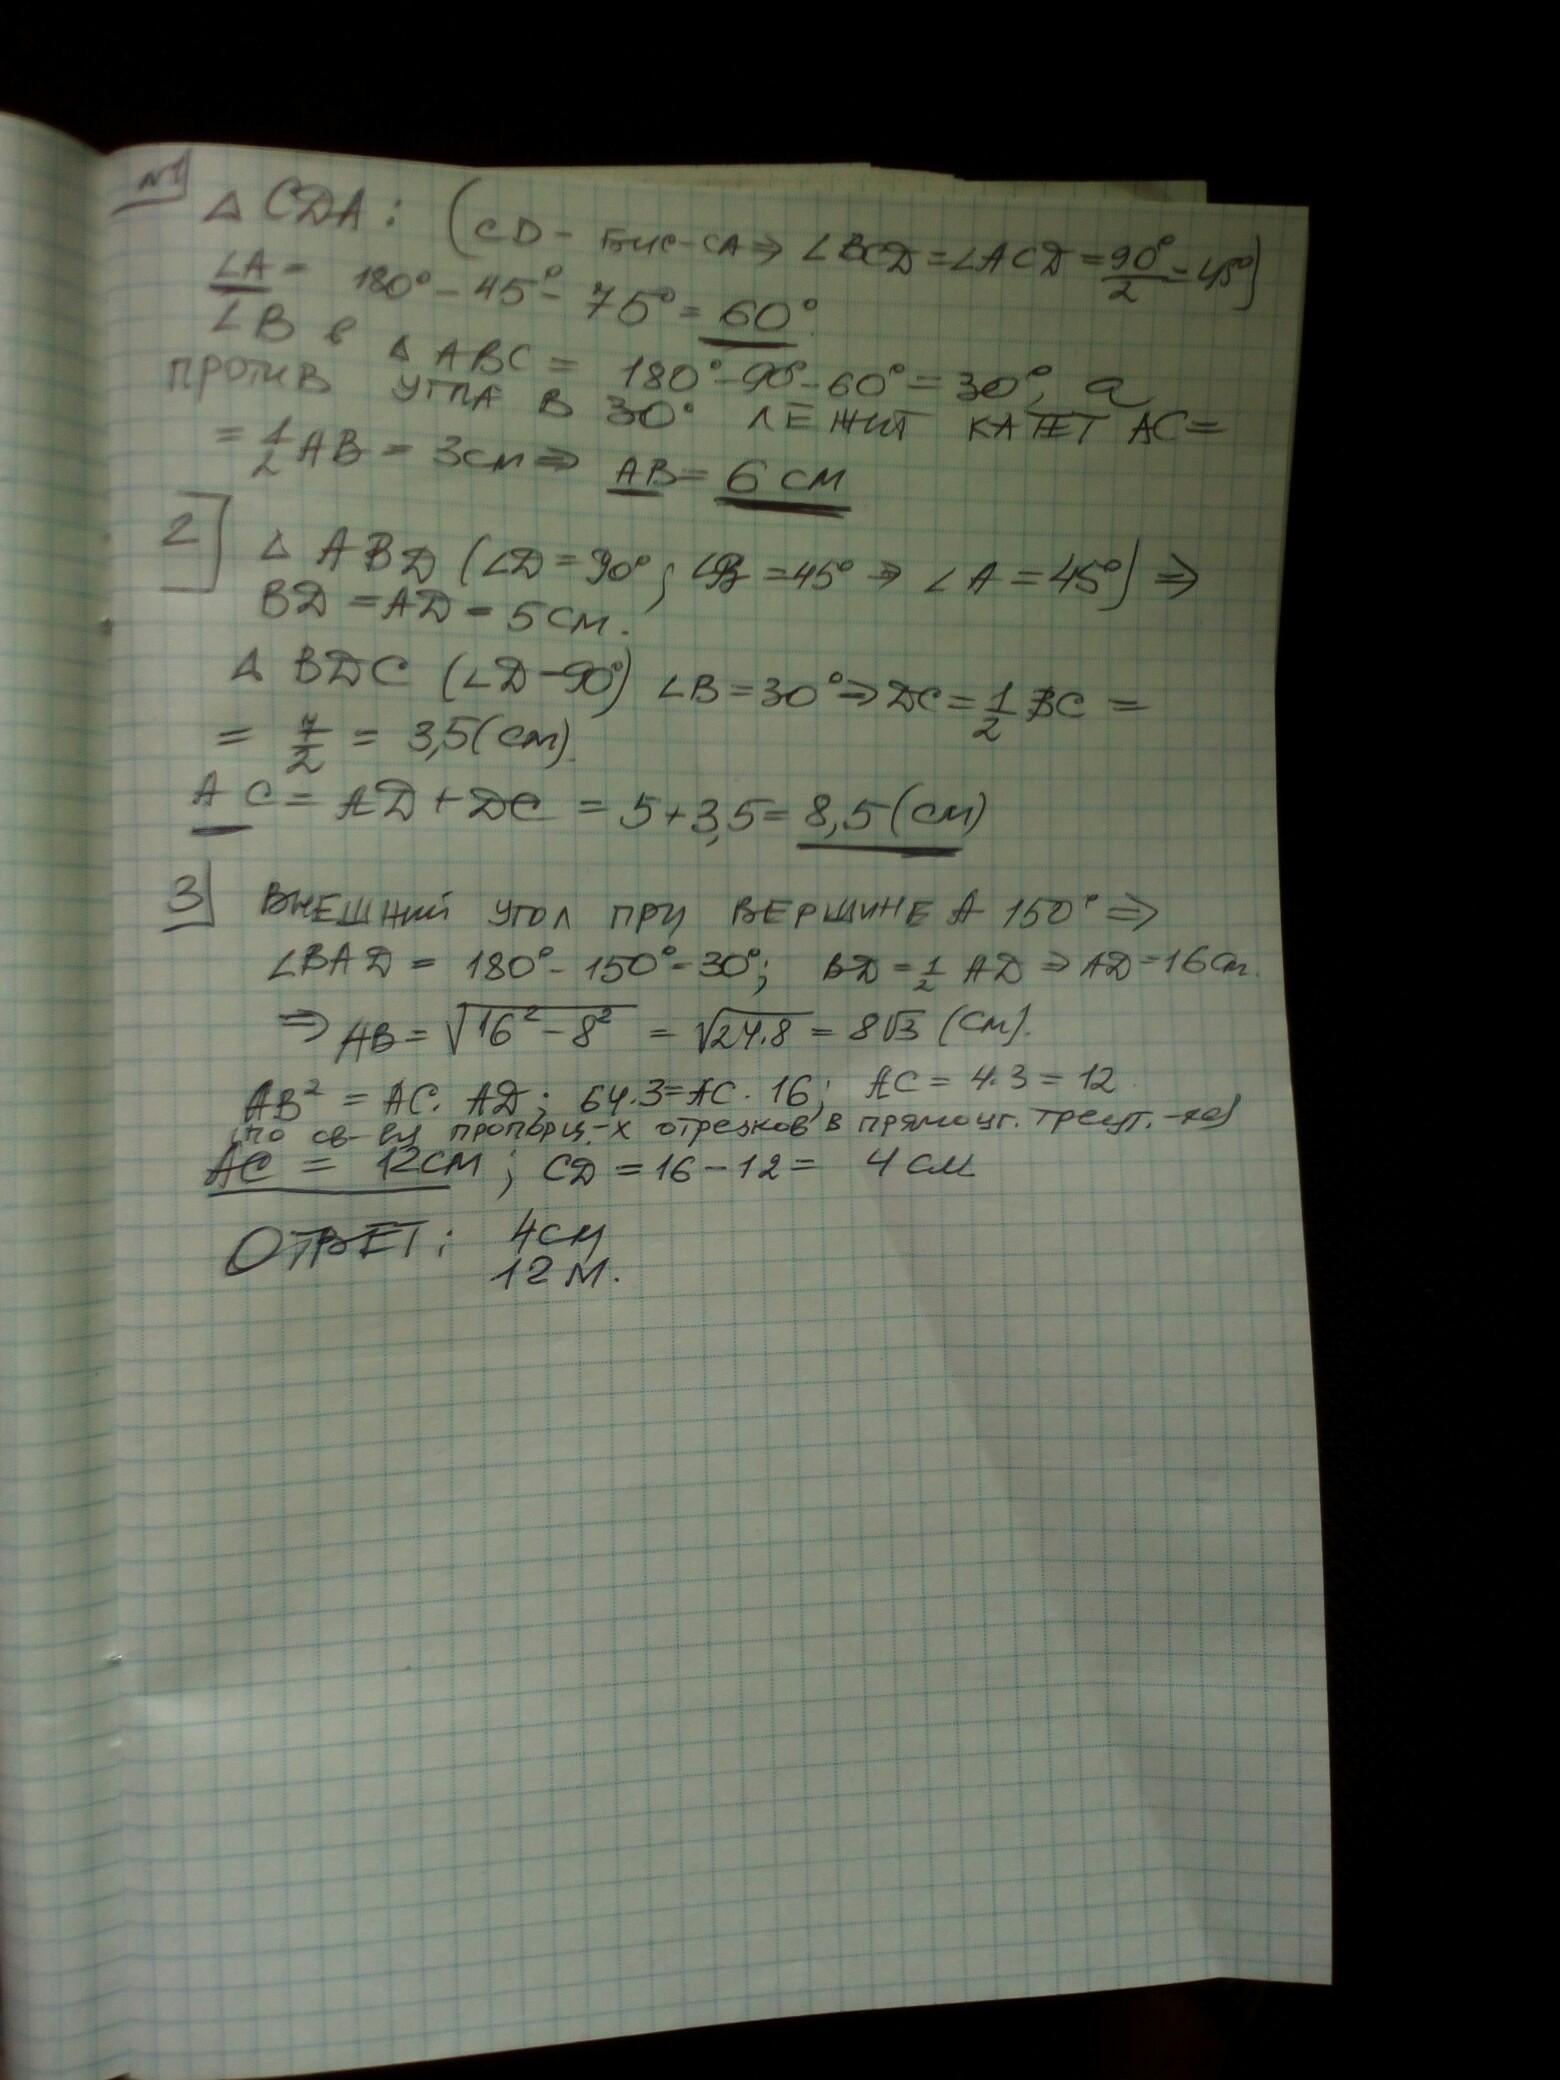 №1
△ CDA: (CD - бис-са ⇒ ∠BCD = ∠ACD = 90°/2 = 45°)
∠A = 180° - 45° - 75° = 60°.
∠B в △ ABC = 180° - 90° - 60° = 30°, а
против угла в 30° лежит катет AC =
= 1/2 AB = 3см ⇒ AB = 6 см
2] △ ABD (∠D = 90°; ∠B = 45° ⇒ ∠A = 45°) ⇒
BD = AD = 5 см.
△ BDC (∠D - 90°) ∠B = 30° ⇒ DC = 1/2 BC =
= 7/2 = 3,5 (см).
AC = AD + DC = 5 + 3,5 = 8,5 (см)
3] Внешний угол при вершине A 150° ⇒
∠BAD = 180° - 150° = 30°; BD = 1/2 AD ⇒ AD = 16 см.
⇒ AB = √16² - 8² = √24·8 = 8√3 (см).
AB² = AC · AD; 64·3 = AC · 16; AC = 4·3 = 12
(по св-ву пропорц-х отрезков в прямоуг. треуг.-ке)
AC = 12 см; CD = 16 - 12 = 4 см
Ответ: 4 см
12 м.